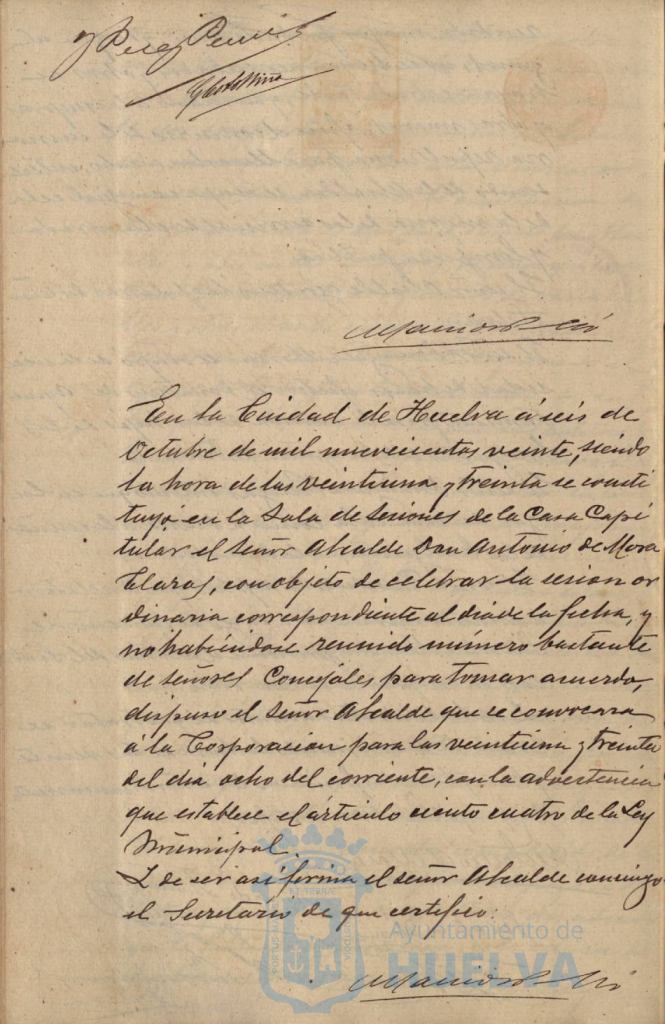 En la Ciudad de Huelva á seis de
Octubre de mil nuevecientos veinte, siendo
la hora de las veintiuna y treinta se consti
tuyó en la Sala de Sesiones de la Casa Capi
tular el Señor Alcalde Don Antonio de Mora
Claros, con objeto de celebrar la sesion or
dinaria correspondiente al dia de la fecha, y
no habiendose reunido número bastante
de señores Concejales para tomar acuerdo,
dispuso el Señor Alcalde que se convocara
á la Corporación para las veintiuna y treinta
del dia ocho del corriente, con la advertencia
que establece el artículo ciento cuatro de la Ley
Municipal.
Y de ser asi firma el señor Alcalde conmigo
el Secretario de que certifico.
Ayuntamiento de
HUELVA